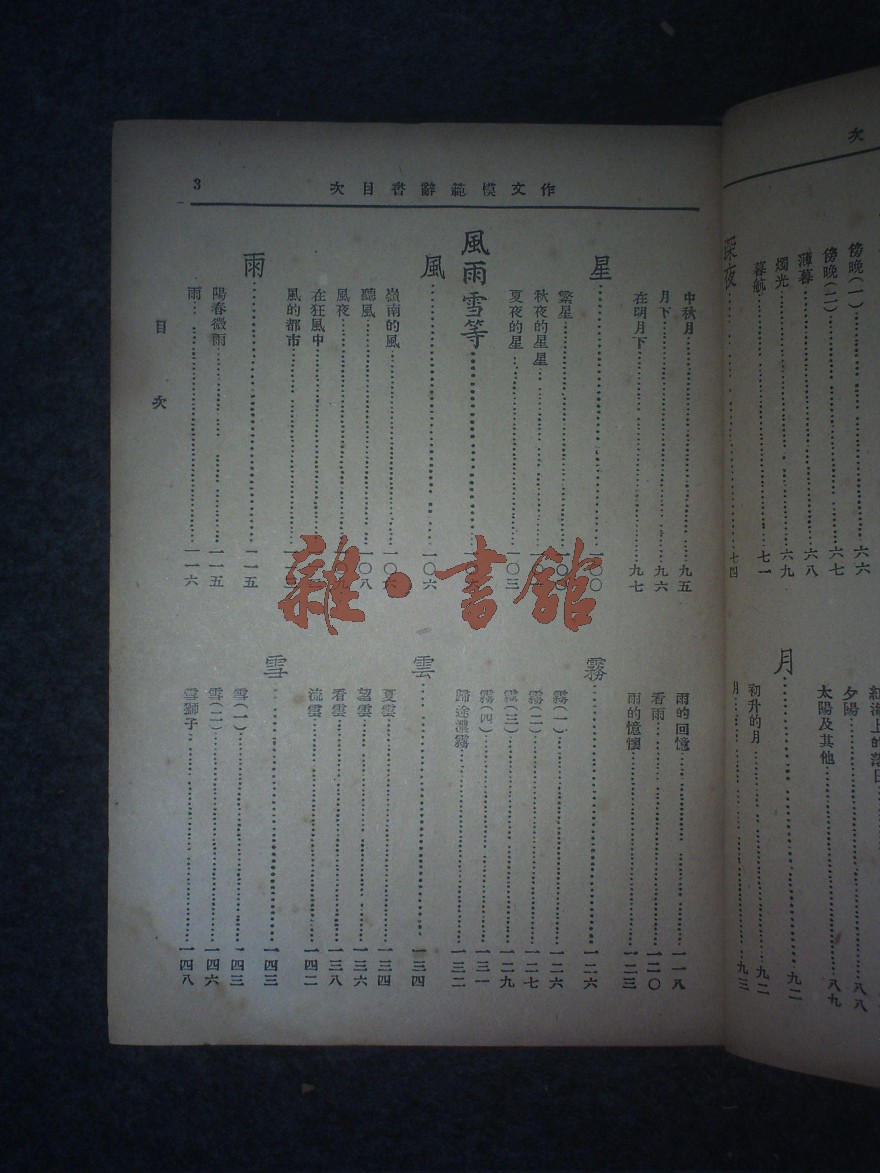 次
傍晚(一)……六六
傍晚(二)……六七
薄暮……六八
燭光……六九
暮航……七一
深夜……七四
紅海上的落日
夕陽……八八
太陽及其他……八九
月……九二
初升的月……九二
月……九三
作文模範辭書目次
3
中秋月……九五
月下……九六
在明月下……九七
星……一〇〇
繁星……
秋夜的星星……
夏夜的星……一〇三
風雨雪等……
風……一〇六
嶺南的風……一〇六
聽風……一〇八
風夜……
在狂風中……
風的都市……
雨……一一五
陽春微雨……一一五
雨……一一六
雨的回憶……一一八
看雨……一二〇
雨的憶懷……一二三
霧……一二六
霧(一)……一二六
霧(二)……一二七
霧(三)……一二九
霧(四)……一三一
歸途濃霧……一三二
雲……一三四
夏雲……一三四
望雲……一三六
看雲……一三八
流雲……一四二
雪……一四三
雪(一)……一四三
雪(二)……一四六
雪獅子……一四八
目次
雜·書館